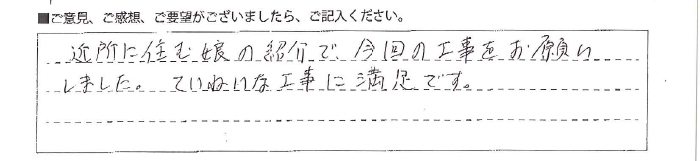 ■ご意見、ご感想、ご要望がございましたら、ご記入ください。
近所に住む娘の紹介で、今回の工事をお願い
しました。ていねいな工事に満足です。